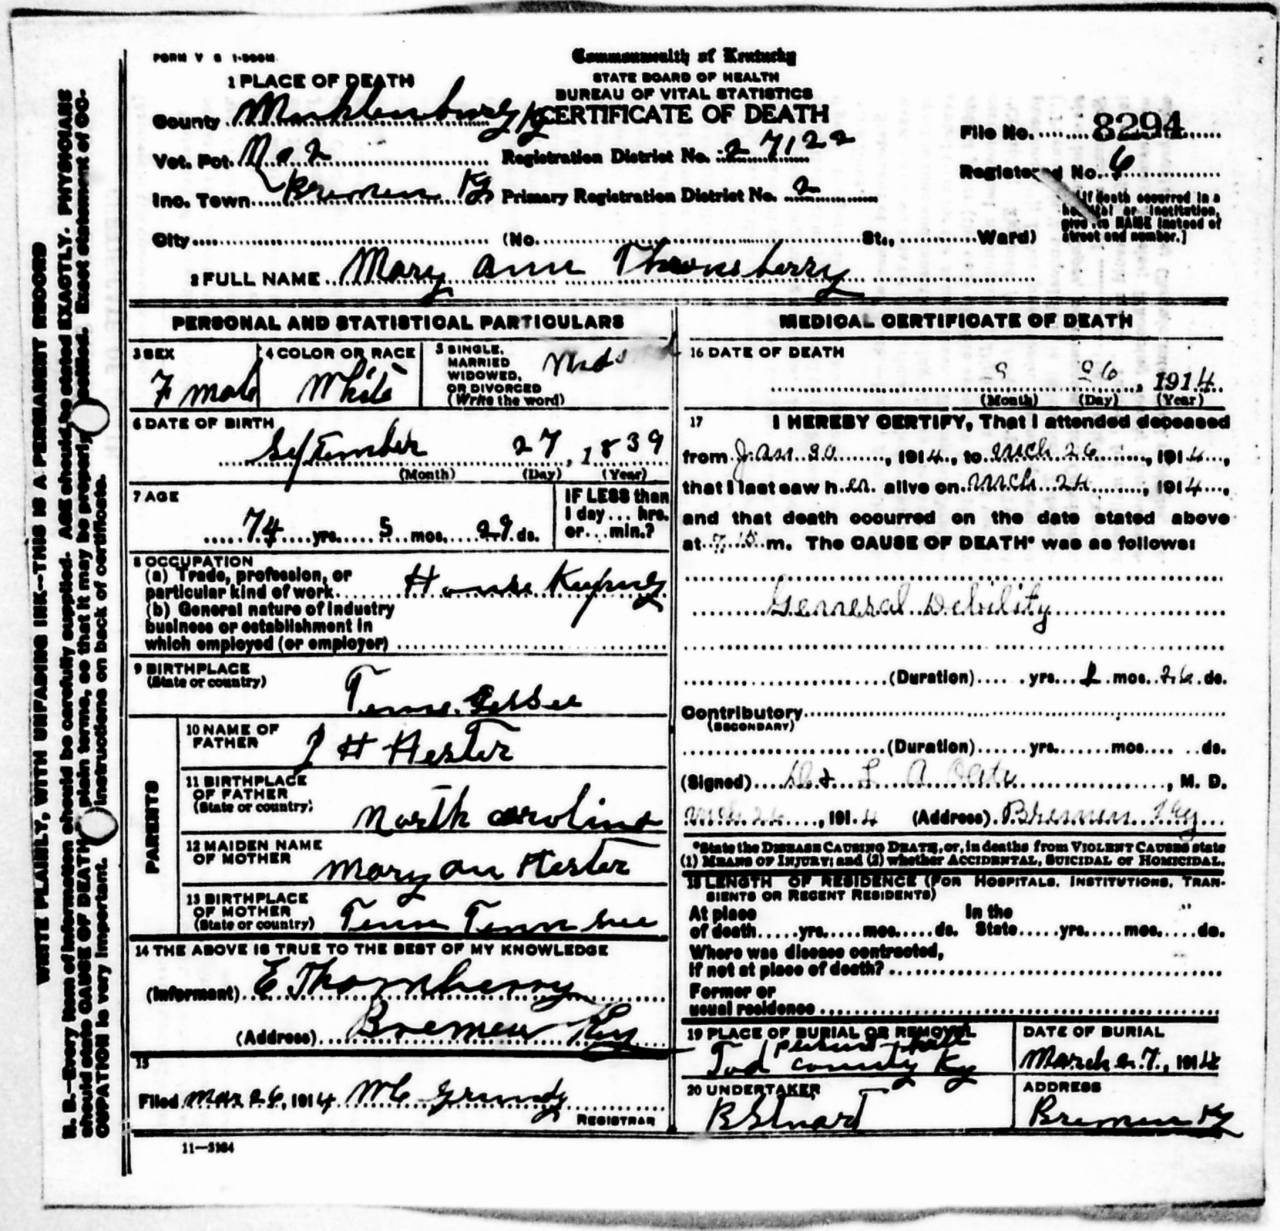 FORM V S 1-500M
Commonwealth of Kentucky
STATE BOARD OF HEALTH
BUREAU OF VITAL STATISTICS
CERTIFICATE OF DEATH
1 PLACE OF DEATH
County Muhlenburg Ky
Vot. Pct. No 2 Registration District No. 27122
Inc. Town Bremen Ky Primary Registration District No. 2
File No. 8294
Registered No. 6
[If death occurred in a
hospital or institution,
give its NAME instead of
street and number.]
City (No. St., Ward)
2 FULL NAME Mary ann Thornsberry
PERSONAL AND STATISTICAL PARTICULARS
3 SEX
F mal
4 COLOR OR RACE
White
5 SINGLE,
MARRIED
WIDOWED,
OR DIVORCED
(Write the word)
6 DATE OF BIRTH
September 27, 1839
(Month) (Day) (Year)
7 AGE
74 yrs. 5 mos. 29 ds.
IF LESS than
1 day... hrs.
or... min.?
8 OCCUPATION
(a) Trade, profession, or
particular kind of work House Keping
(b) General nature of industry
business or establishment in
which employed (or employer)
9 BIRTHPLACE
(State or country)
PARENTS
10 NAME OF
FATHER J H Hester
11 BIRTHPLACE
OF FATHER
(State or country) North Carolina
12 MAIDEN NAME
OF MOTHER Mary an Hester
13 BIRTHPLACE
OF MOTHER
(State or country) Tenn
14 THE ABOVE IS TRUE TO THE BEST OF MY KNOWLEDGE
(Informant) E Thornberry
(Address) Bremen Ky
15
Filed Mar 26, 1914 WC Grundy
REGISTRAR
11-3184
MEDICAL CERTIFICATE OF DEATH
16 DATE OF DEATH
26, 1914
(Month) (Day) (Year)
17 I HEREBY CERTIFY, That I attended deceased
from Jan 30, 1914, to Mch 26, 1914,
that I last saw her alive on Mch 24, 1914,
and that death occurred on the date stated above
at 7 15 m. The CAUSE OF DEATH* was as follows:
General Debility
(Duration) yrs. 1 mos. 26 ds.
Contributory
(SECONDARY)
(Duration) yrs. mos. ds.
(Signed) Dr L A, M. D.
Mch 26, 1914 (Address) Bremen Ky
*State the DISEASE CAUSING DEATH, or, in deaths from VIOLENT CAUSES state
(1) MEANS OF INJURY; and (2) whether ACCIDENTAL, SUICIDAL or HOMICIDAL.
18 LENGTH OF RESIDENCE (FOR HOSPITALS, INSTITUTIONS, TRAN-
SIENTS OR RECENT RESIDENTS)
At place In the
of death yrs. mos. ds. State yrs. mos. ds.
Where was disease contracted,
if not at place of death?
Former or
usual residence
19 PLACE OF BURIAL OR REMOVAL
Tod County Ky
DATE OF BURIAL
March 27, 1914
20 UNDERTAKER
B Stuart
ADDRESS
Bremen Ky
WRITE PLAINLY, WITH UNFADING INK—THIS IS A PERMANENT RECORD
N. B.—Every item of information should be carefully supplied. AGE should be stated EXACTLY. PHYSICIANS
should state CAUSE OF DEATH in plain terms, so that it may be properly classified. Exact statement of OC-
CUPATION is very important. See instructions on back of certificate.